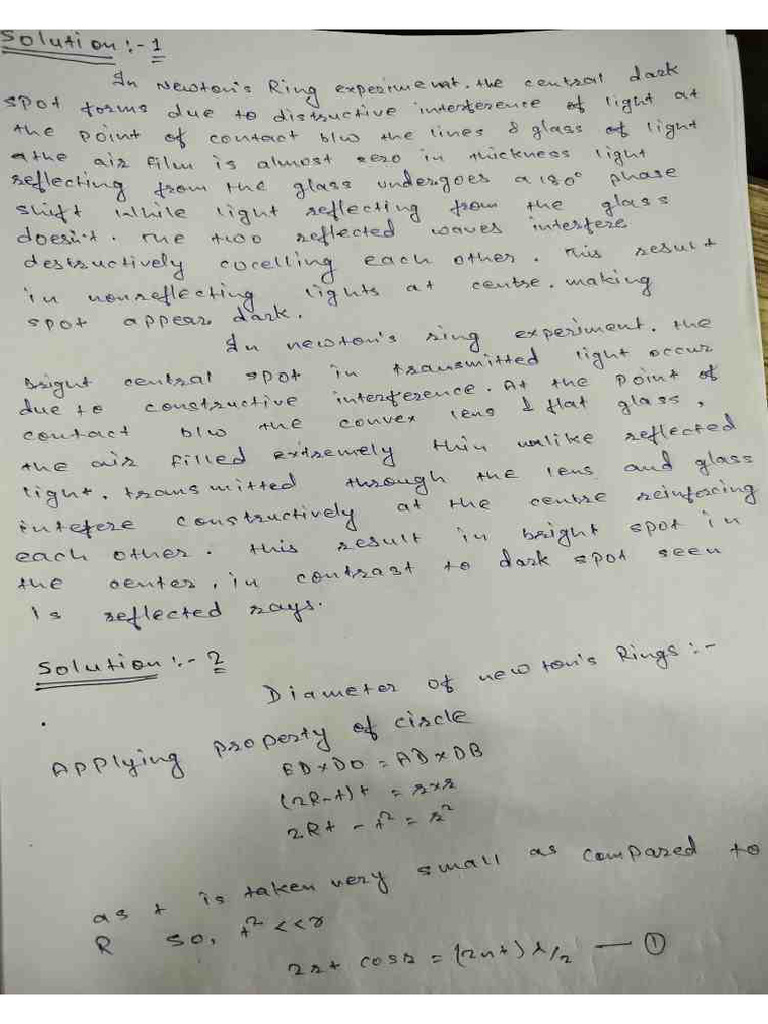 Solution :- 1
In Newton's Ring experiment. the central dark
spot forms due to distructive interference of light at
the point of contact b/w the lines & glass of light
athe air film is almost zero in thickness light
reflecting from the glass undergoes a 180° phase
shift while light reflecting from the glass
doesn't. The two reflected waves interfere
destructively cocelling each other. This result
in nonreflecting lights at centre. making
spot appear dark.
In newton's ring experiment. the
bright central spot in transmitted light occur
due to constructive interference. At the point of
contact b/w the convex lens & flat glass,
the air filled extremely thin unlike reflected
light. transmitted through the lens and glass
intefere constructively at the centre reinforcing
each other. this result in bright spot in
the center, in contrast to dark spot seen
is reflected rays.
Solution :- 2
Diameter of newton's Rings :-
Applying property of circle
ED×DO = AD×DB
(2R-t)t = r×r
2Rt - t² = r²
as t is taken very small as compared to
R so, t² <<r
2rt cosr = (2nt) λ/2 — ①